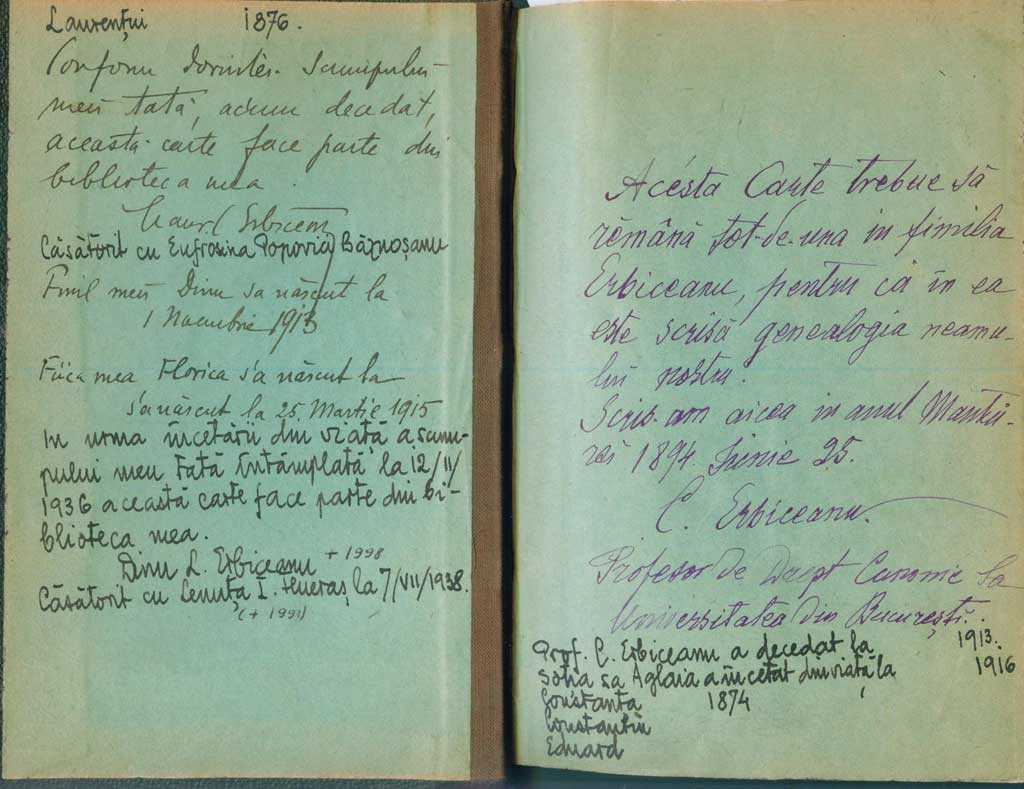 Laurențiu 1876.
Conform dorinței scumpului
meu tată, acum decedat,
aceasta carte face parte din
biblioteca mea.
Laur. Erbiceanu
Căsătorit cu Eufrosina Popovici Bâznoșanu
Fiul meu Dinu sa născut la
1 Noembrie 1913
Fiica mea Florica s'a născut la
s'a născut la 25 Martie 1915
In urma încetării din viată a scum-
pului meu tată întâmplată la 12/II/
1936 această carte face parte din bi-
blioteca mea.
Dinu L. Erbiceanu + 1998
Căsătorit cu Lenuța I. la 7/VII/1938.
(+ 1991)
Acésta Carte trebue să
rěmână tot-de-una in fimilia
Erbiceanu, pentru că în ea
este scrisă genealogia neamu-
lui nostru.
Scris-am aicea in anul Mântu-
rei 1894 Iunie 25.
C. Erbiceanu.
Profesor de Drept Canonic la
Universitatea din București.
Prof. C. Erbiceanu a decedat la 1913.
Soția sa Aglaia a încetat din viață la 1916
Constanta 1874
Constantin
Eduard